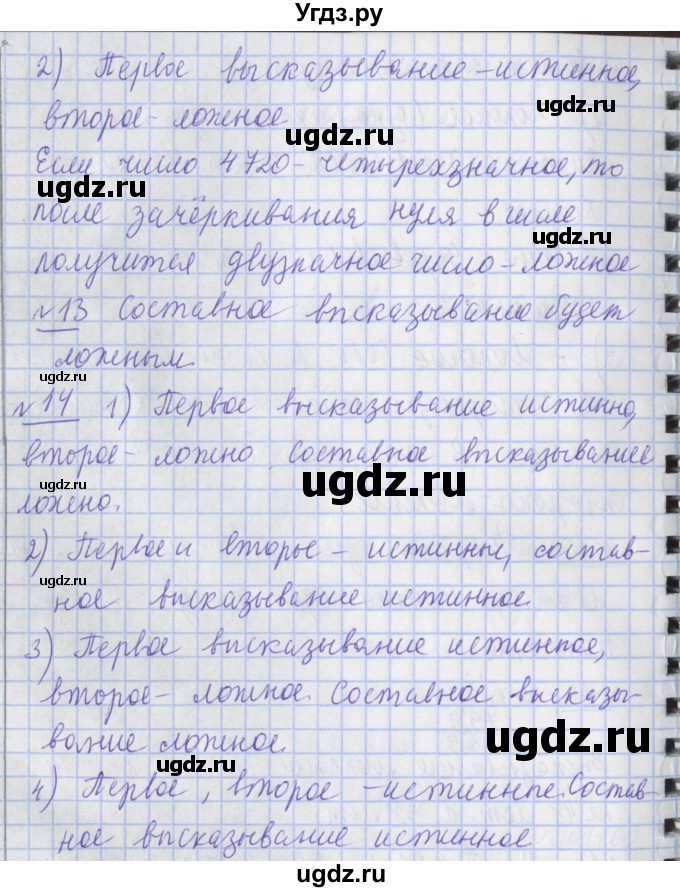 Угдз.ру
2) Первое высказывание - истинное,
второе - ложное
ugdz.ru
ugdz.ru
Если число 4720 - четырехзначное, то
ugdz.ru
после зачёркивания нуля в числе
ugdz.ru
получится двузначное число - ложное
№13 Составное высказывание будет
ложным.
ugdz.ru
ugdz.ru
№14 1) Первое высказывание истинно,
второе - ложно. Составное высказывание
ugdz.ru
ugdz.ru
ложно.
2) Первое и второе - истинны, состав-
ugdz.ru
ное высказывание истинное.
ugdz.ru
3) Первое высказывание истинное,
второе - ложное. Составное высказы-
ugdz.ru
вание ложное.
ugdz.ru
4) Первое, второе - истинные. Состав-
ное высказывание истинное
ugdz.ru